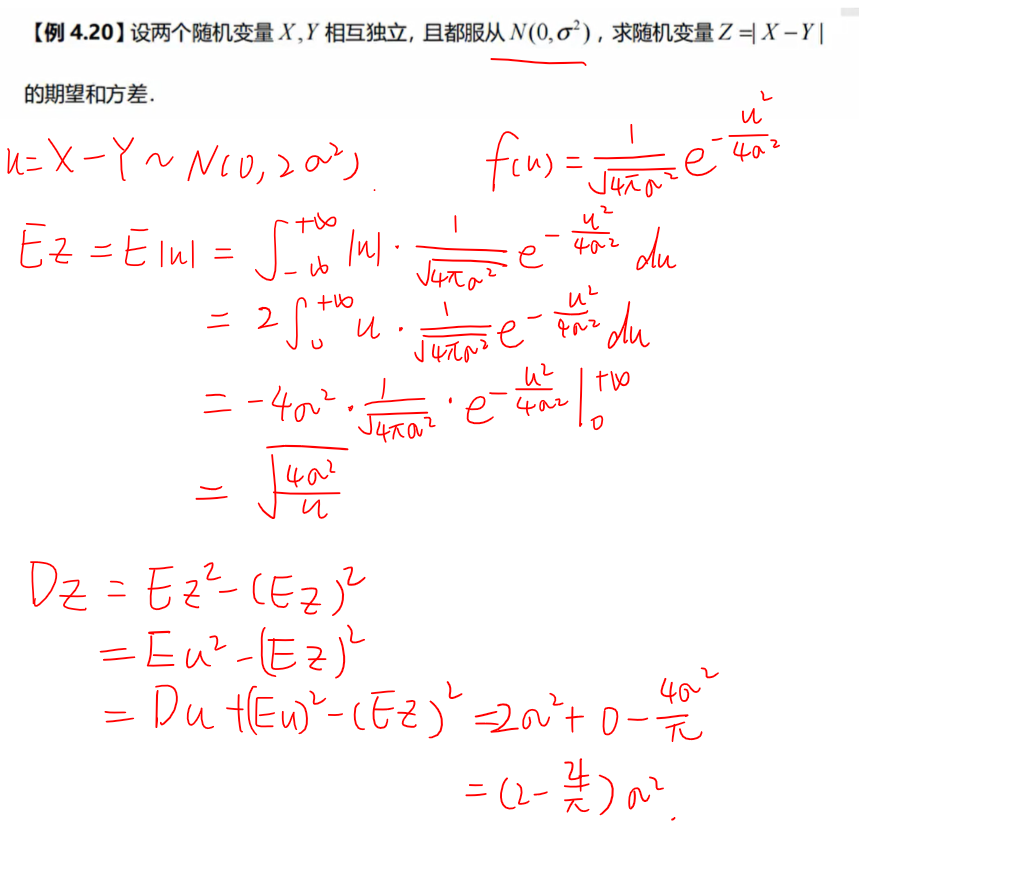 【例 4.20】设两个随机变量 X,Y 相互独立, 且都服从 N(0,σ²), 求随机变量 Z =| X – Y |
的期望和方差.
u= X-Y ~ N(0, 2σ²). f(u) = 1/√(4πσ²) e^(-u²/4σ²)
EZ = E|u| = ∫_{-∞}^{+∞} |u| · 1/√(4πσ²) e^(-u²/4σ²) du
= 2∫_0^{+∞} u · 1/√(4πσ²) e^(-u²/4σ²) du
= -4σ² · 1/√(4πσ²) · e^(-u²/4σ²) |_0^{+∞}
= √(4σ²/π)
DZ = EZ² - (EZ)²
= Eu² - (EZ)²
= Du +(Eu)² - (EZ)² = 2σ² + 0 - 4σ²/π
= (2 - 4/π) σ².